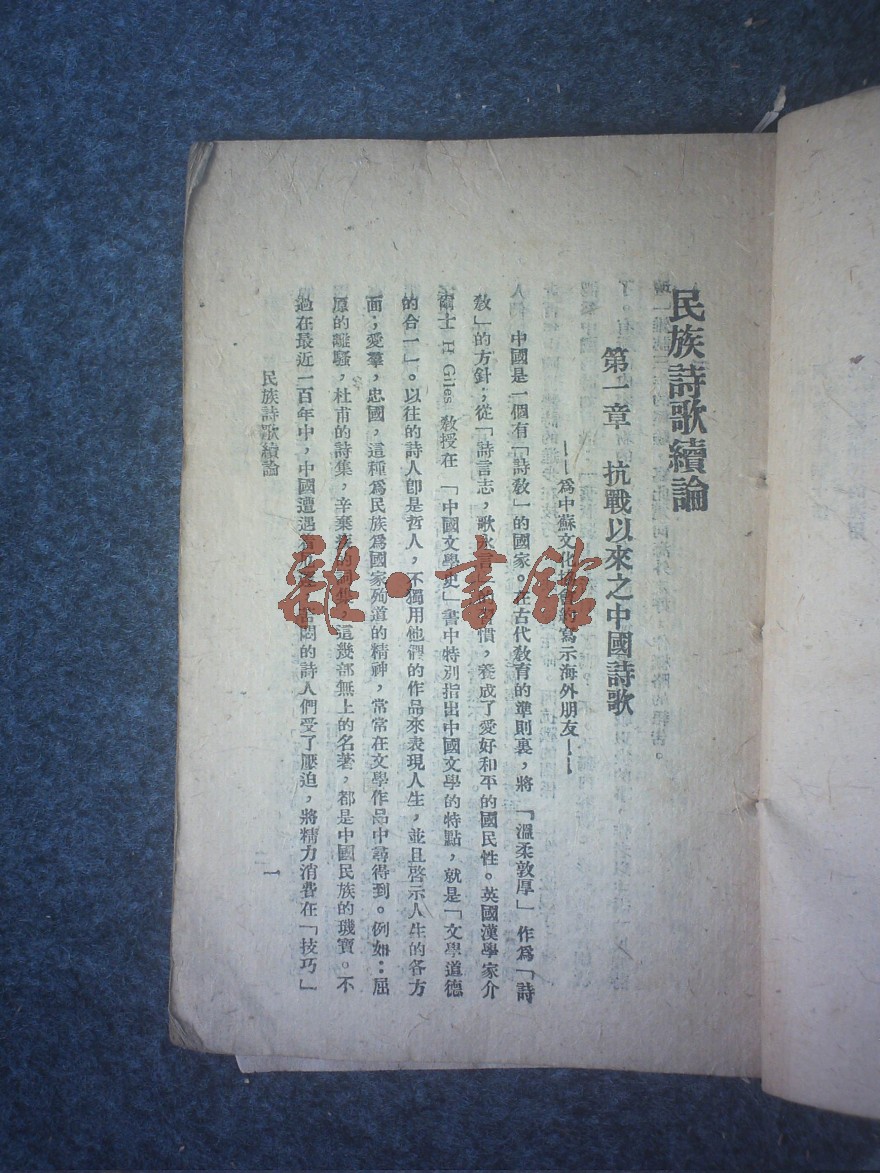 民族詩歌續論
第一章 抗戰以來之中國詩歌
——爲中蘇文化協會寫示海外朋友——
中國是一個有「詩教」的國家。在古代教育的準則裏，將「溫柔敦厚」作爲「詩
教」的方針；從「詩言志，歌永言」習慣，養成了愛好和平的國民性。英國漢學家介
爾士 H Giles 教授在「中國文學史」書中特別指出中國文學的特點，就是「文學道德
的合一」。以往的詩人卽是哲人，不獨用他們的作品來表現人生，並且啓示人生的各方
面；愛羣，忠國，這種爲民族爲國家殉道的精神，常常在文學作品中尋得到。例如：屈
原的離騷，杜甫的詩集，辛棄疾的詞集，這幾部無上的名著，都是中國民族的瓌寶。不
過在最近一百年中，中國遭遇 悶的詩人們受了壓迫，將精力消費在「技巧」
民族詩歌續論
一
雜·書館